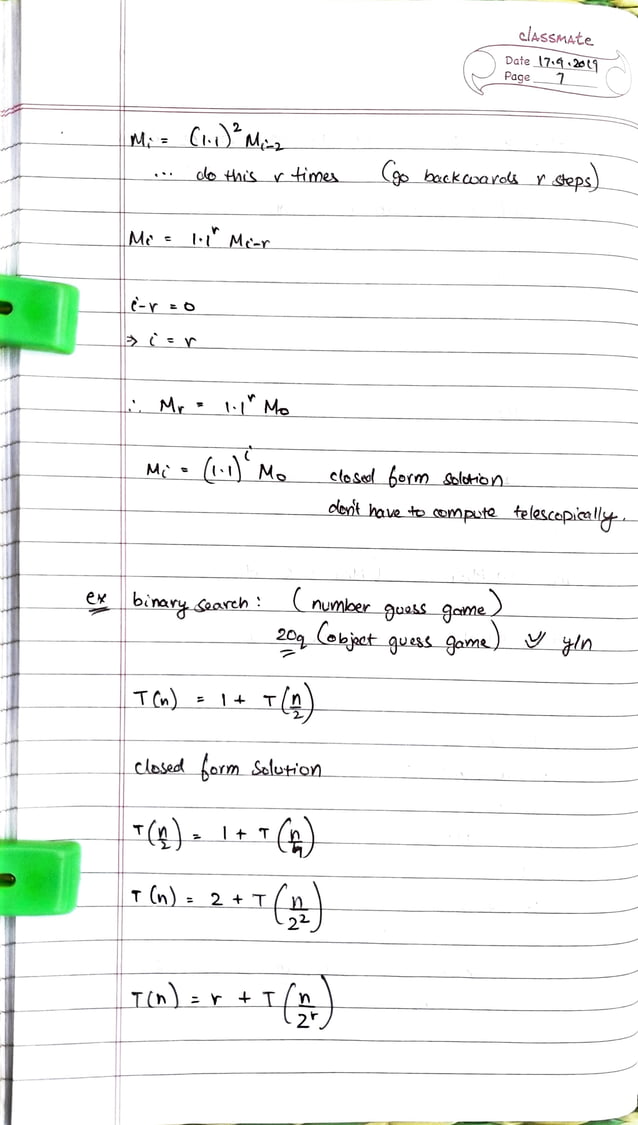 classmate
Date 17.9.2019
Page 7
Mi = (1.1)² Mi-2
... do this r times (go backwards r steps)
Mi = 1.1^r Mi-r
i-r = 0
⇒ i = r
∴ Mr = 1.1^r M0
Mi = (1.1)^i M0 closed form solution
don't have to compute telescopically.
ex binary search: (number guess game)
20q (object guess game) y/n
T(n) = 1 + T(n/2)
closed form solution
T(n/2) = 1 + T(n/4)
T(n) = 2 + T(n/2²)
T(n) = r + T(n/2^r)